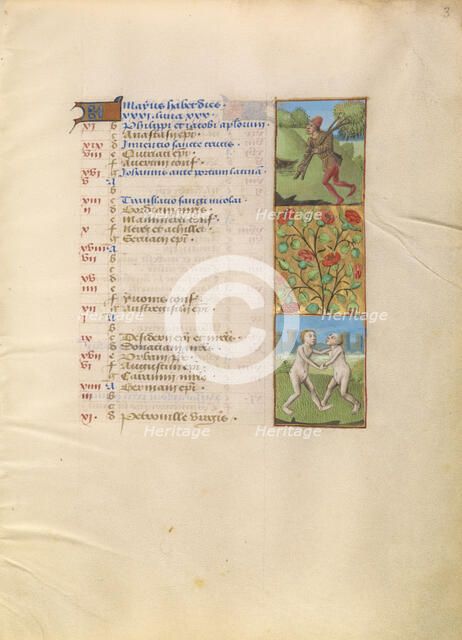 3
Mayus habet dies
XXXI. luna XXX.
xi b Philippi et iacobi aplorum
c Anastasii epi
xix d Inventio sancte crucis
viii e Quiriaci epi
f conf
xvi g Iohannis ante portam latinam
v A
b
xiii c Translatio sancti nicolai
ii d Gordiani mris
e
x f Nerei et achillei
g Servacii epi
xviii A
vii b
c
xv d
iiii e
f Yvonis conf
xii g epi
i A
b
ix c Desiderii epi et mris
d Donaciani mris
xvii e Urbani ppe
vi f Augustini epi
g mris
xiiii A Germani epi
iii b
c
xi d Petronille virgis
Heritage
Heritage
Heritage
Heritage
Heritage
Heritage
Heritage